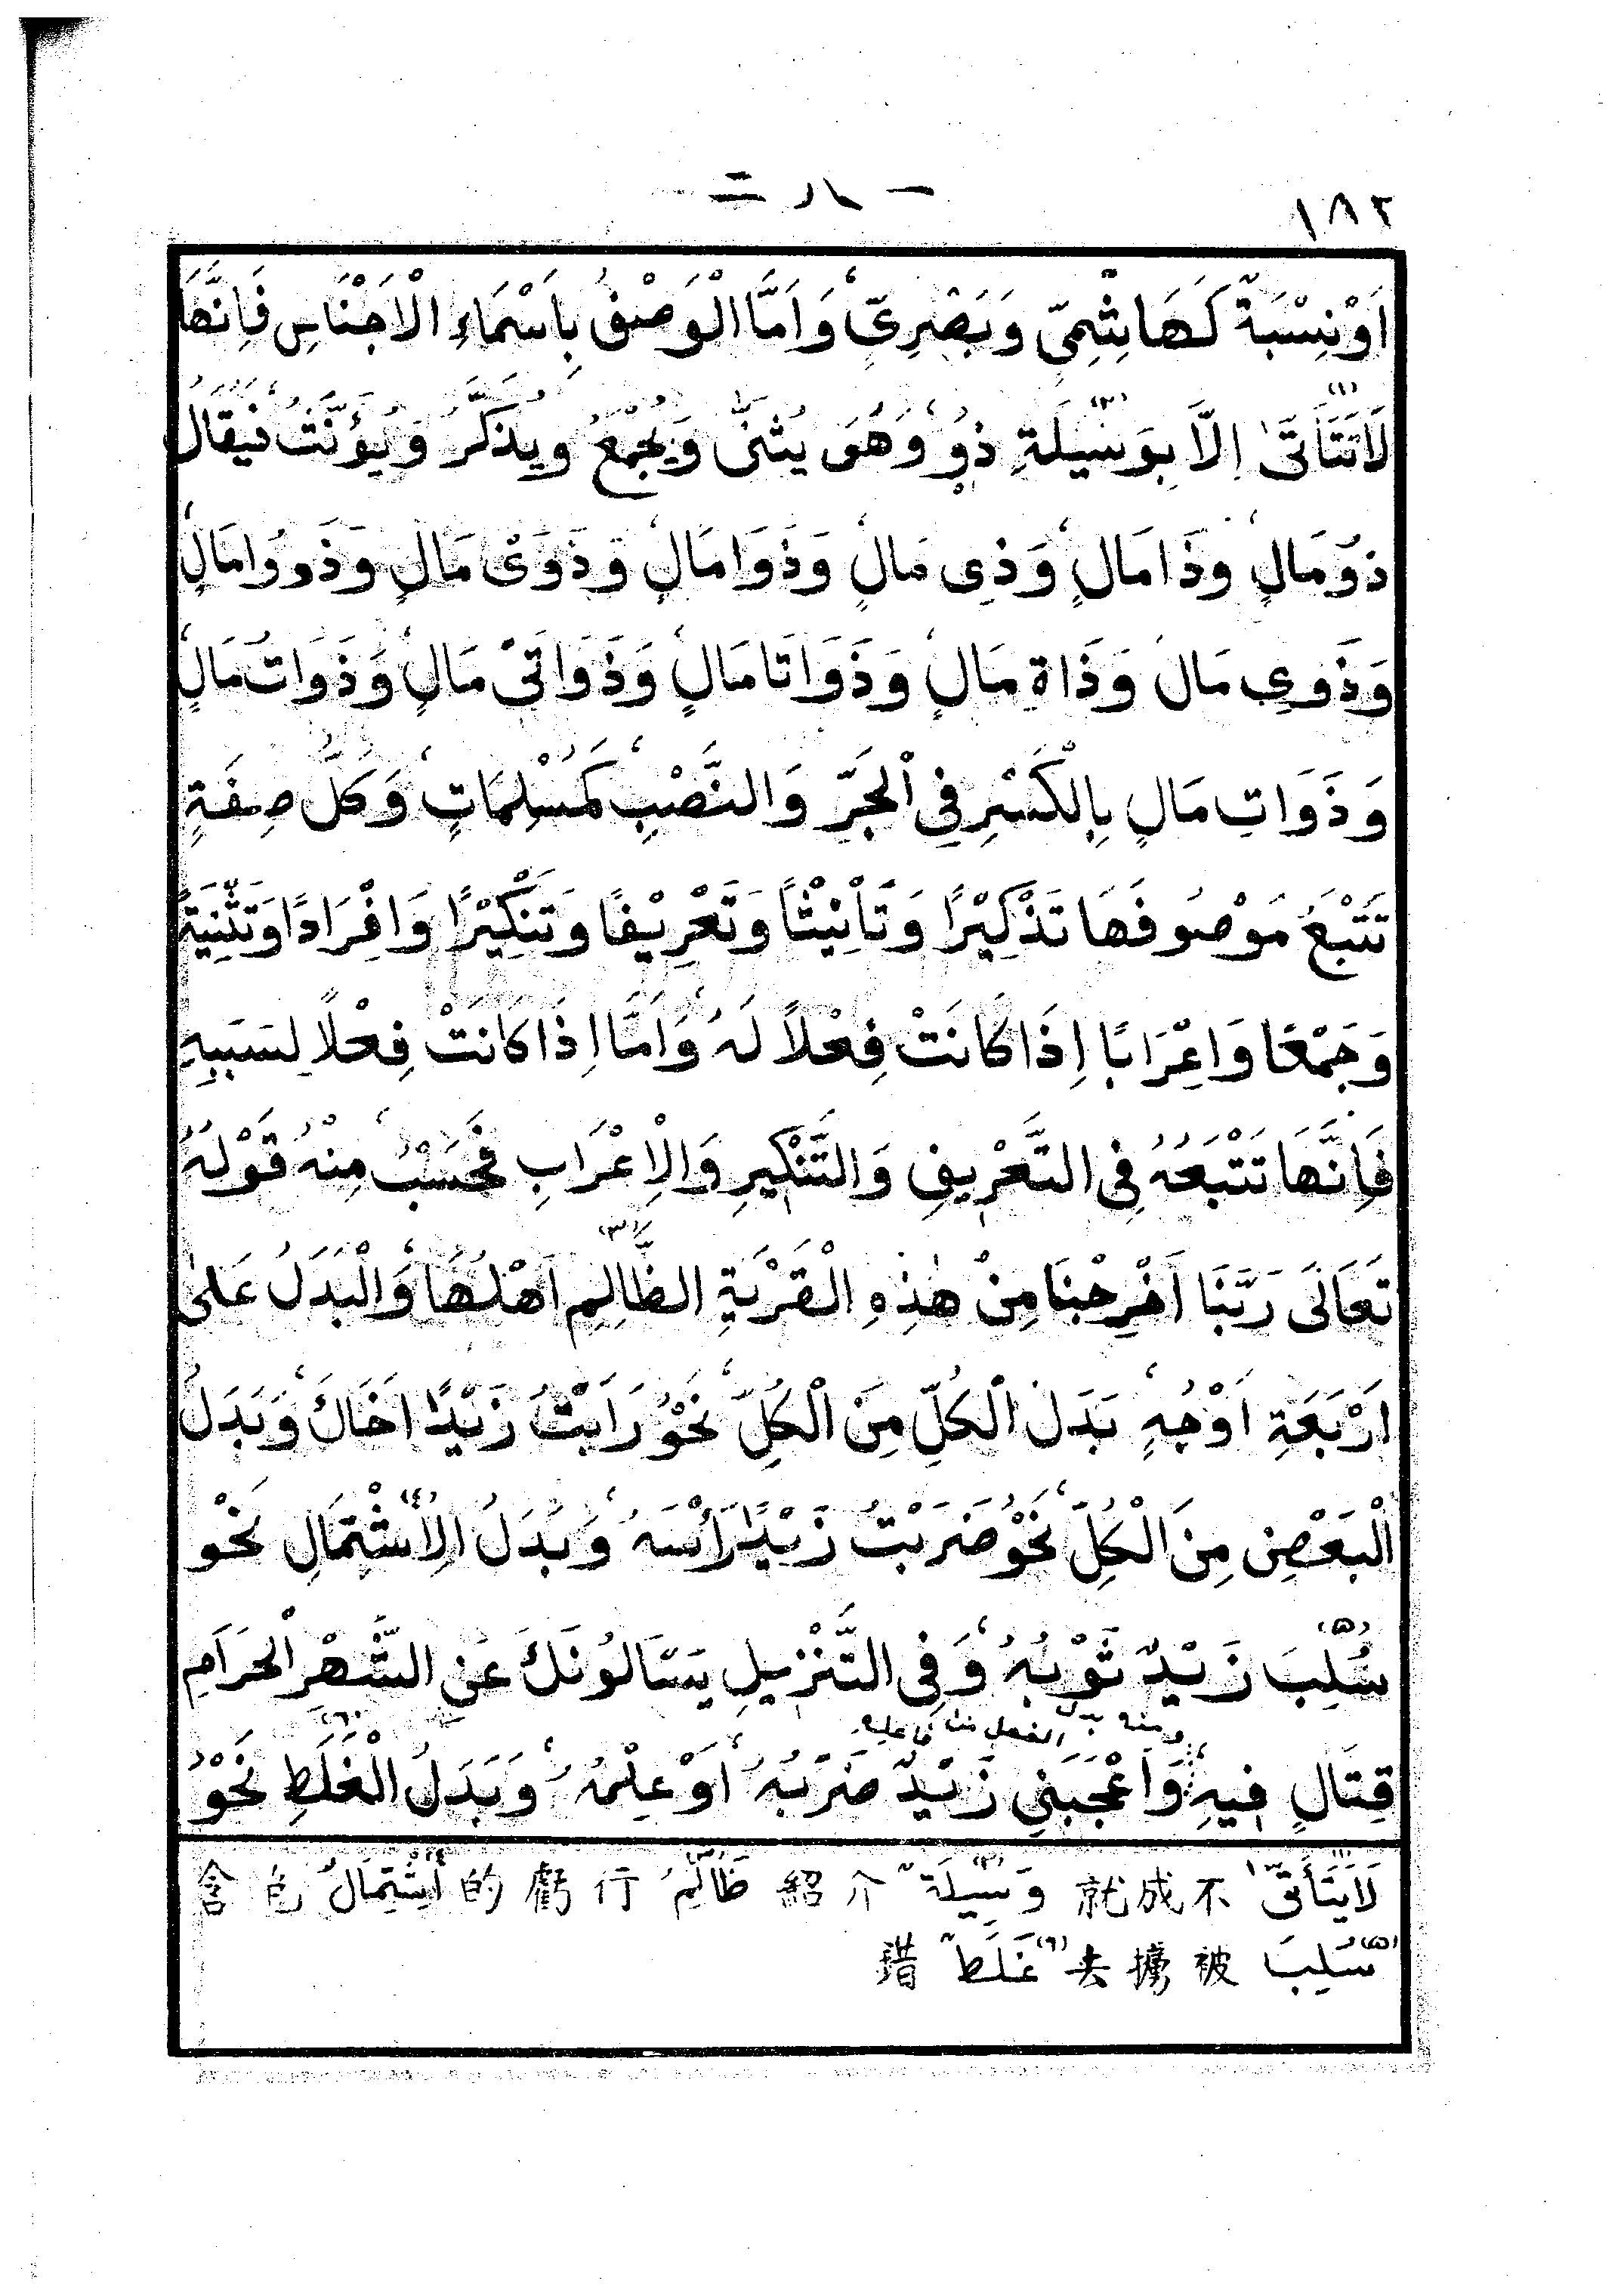 ١٨٢
اَوْ نِسْبَةً كَهَاشِمِيٍّ وَبَصْرِيٍّ، وَاَمَّا الْوَصْفُ بِاَسْمَاءِ الْاَجْنَاسِ فَاِنَّهَا
لَاتَتَأَتَّى (١) اِلَّا بِوَسِيْلَةِ (٢) ذُوْ، وَهُوَ يُثَنَّى وَيُجْمَعُ وَيُذَكَّرُ وَيُؤَنَّثُ، فَيُقَالُ
ذُوْمَالٍ، وَذَا مَالٍ، وَذِى مَالٍ، وَذَوَا مَالٍ، وَذَوَىْ مَالٍ، وَذَوُوا مَالٍ،
وَذَوِى مَالٍ، وَذَاةُ مَالٍ، وَذَوَاتَا مَالٍ، وَذَوَاتَىْ مَالٍ، وَذَوَاتُ مَالٍ،
وَذَوَاتِ مَالٍ بِالْكَسْرِ فِى الْجَرِّ وَالنَّصْبِ، كَمُسْلِمَاتٍ، وَكُلُّ صِفَةٍ
تَتْبَعُ مَوْصُوفَهَا تَذْكِيْرًا وَتَاْنِيْثًا وَتَعْرِيْفًا وَتَنْكِيْرًا وَاِفْرَادًا وَتَثْنِيَةً
وَجَمْعًا وَاِعْرَابًا اِذَا كَانَتْ فِعْلًا لَهُ، وَاَمَّا اِذَا كَانَتْ فِعْلًا لِسَبَبِهِ
فَاِنَّهَا تَتْبَعُهُ فِى التَّعْرِيفِ وَالتَّنْكِيرِ وَالْاِعْرَابِ فَحَسْبُ، مِنْهُ قَوْلُهُ
تَعَالَى رَبَّنَا اَخْرِجْنَا مِنْ هٰذِهِ الْقَرْيَةِ الظَّالِمِ (٣) اَهْلُهَا، وَالْبَدَلُ عَلٰى
اَرْبَعَةِ اَوْجُهٍ، بَدَلُ الْكُلِّ مِنَ الْكُلِّ، نَحْوُ رَاَيْتُ زَيْدًا اَخَاكَ، وَبَدَلُ
الْبَعْضِ مِنَ الْكُلِّ، نَحْوُ ضَرَبْتُ زَيْدًا رَأْسَهُ، وَبَدَلُ الْاِشْتِمَالِ (٤) نَحْوُ
سُلِبَ (٥) زَيْدٌ ثَوْبُهُ، وَفِى التَّنْزِيلِ يَسْاَلُونَكَ عَنِ الشَّهْرِ الْحَرَامِ
ومنه بدل الفعل من فاعله
قِتَالٍ فِيهِ، وَاَعْجَبَنِي زَيْدٌ ضَرْبُهُ، اَوْ عِلْمُهُ، وَبَدَلُ الْغَلَطِ (٦) نَحْوُ
(١) لَايَتَأَتَّى 不成就 (٢) وَسِيلَةٌ 介紹 (٣) ظَالِمٌ 行虧的 (٤) اِشْتِمَالٌ 包含
(٥) سُلِبَ 被擄去 (٦) غَلَطٌ 錯